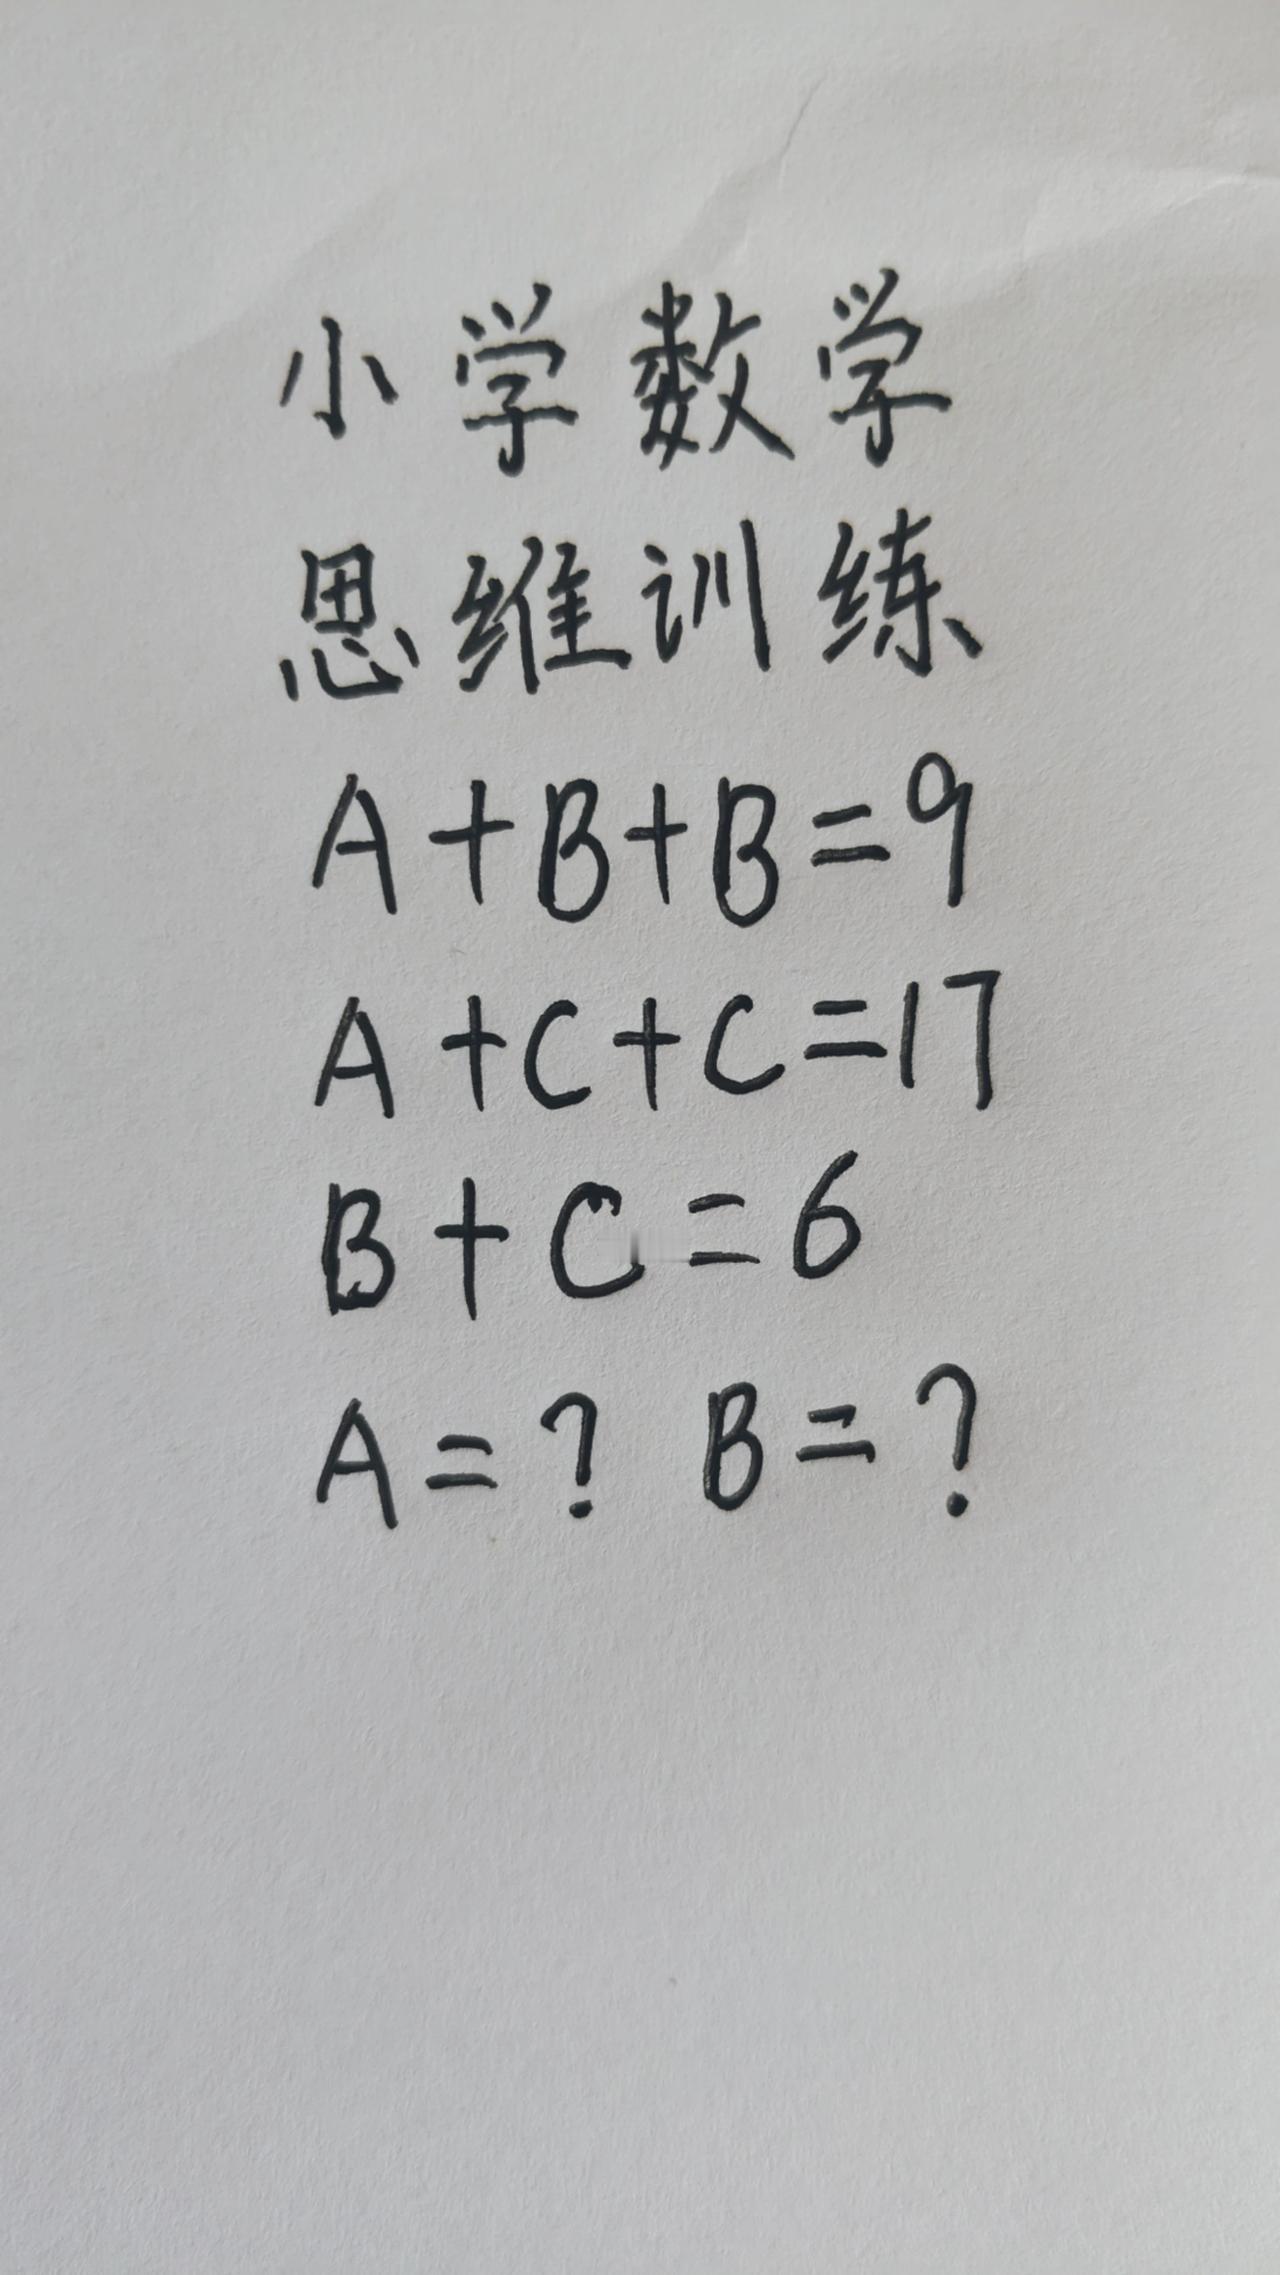 小学数学
思维训练
A+B+B=9
A+C+C=17
B+C=6
A=? B=?